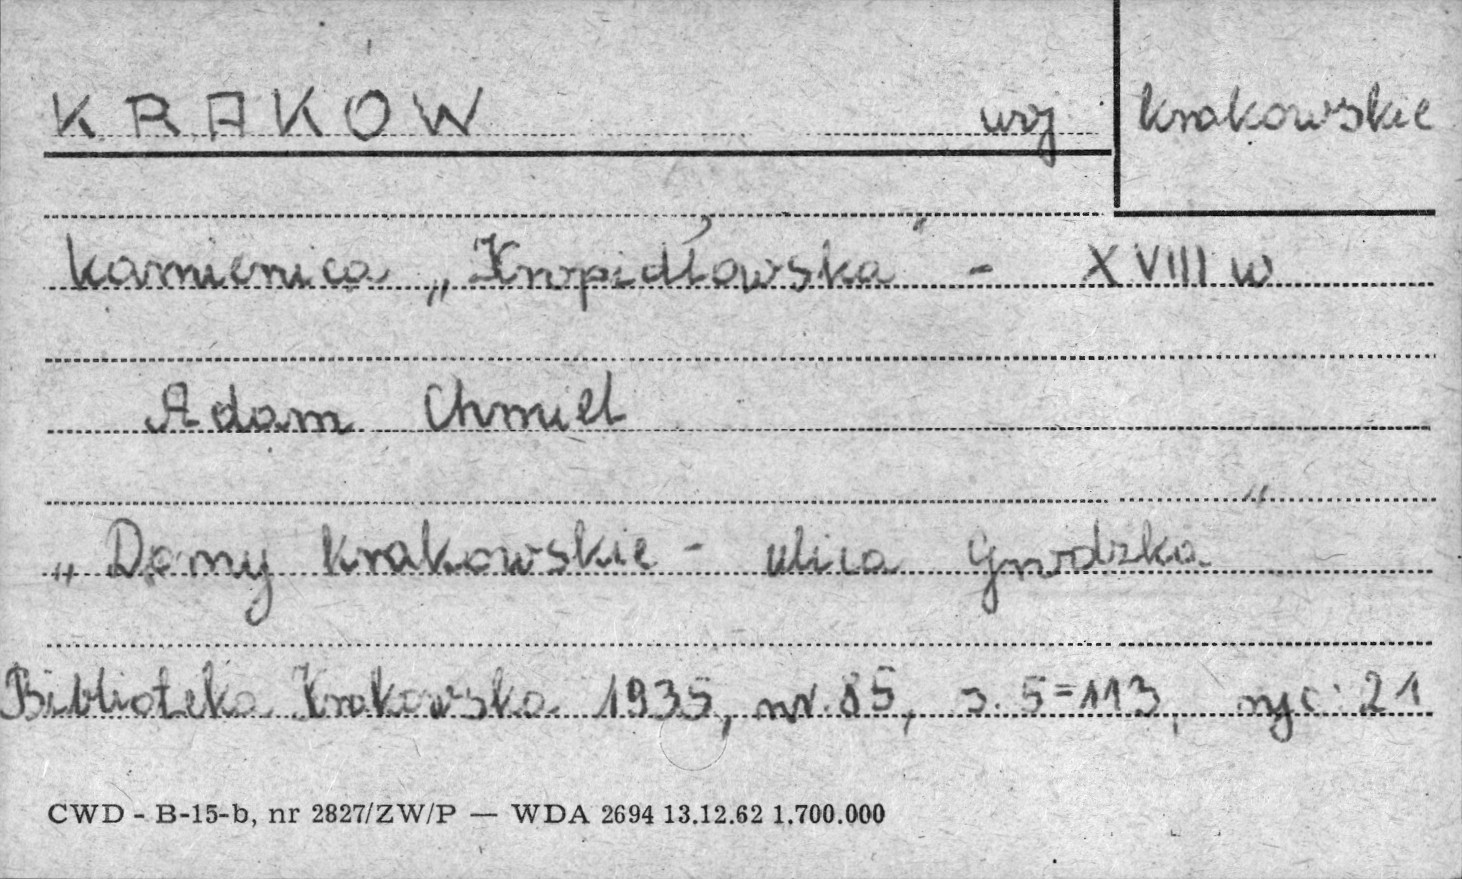 KRAKÓW woj krakowskie
kamienica „Kropidłowska" - XVIII w
Adam Chmiel
„Domy krakowskie - ulica Grodzka"
Biblioteka Krakowska 1935, nr. 85, s. 5=113, ryc: 21
CWD - B-15-b, nr 2827/ZW/P — WDA 2694 13.12.62 1.700.000